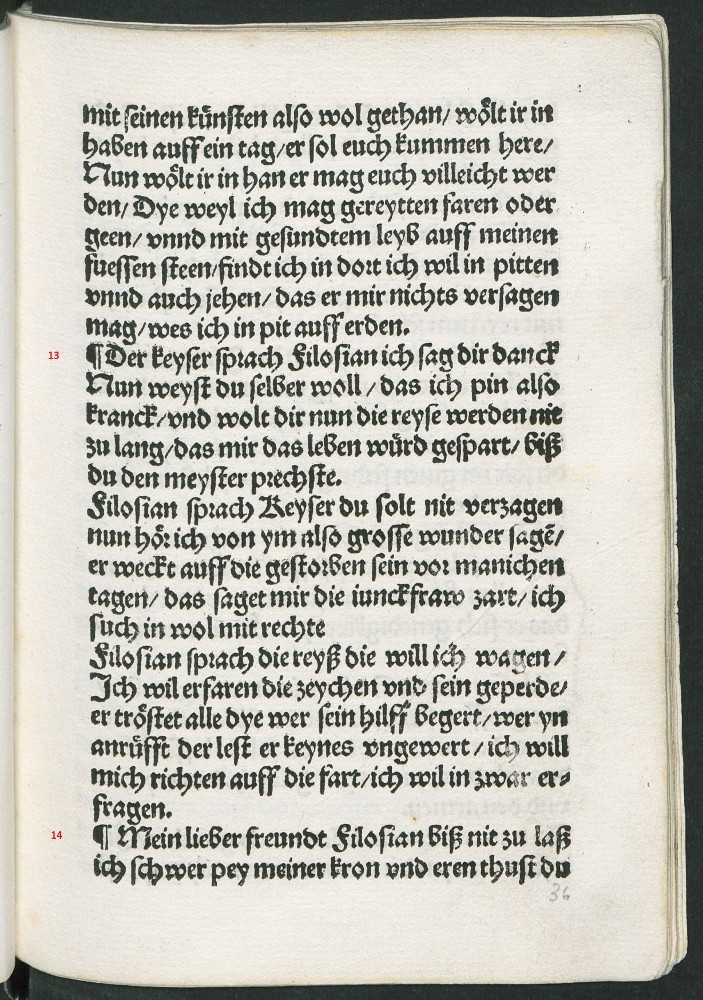 mit seinen künsten also wol gethan/ wölt ir in
haben auff ein tag/ er sol euch kummen here/
Nun wölt ir in han er mag euch villeicht wer
den/ Dye weyl ich mag gereytten faren oder
geen/ vnnd mit gesundtem leyb auff meinen
fuessen steen/ findt ich in dort ich wil in pitten
vnnd auch jehen/ das er mir nichts versagen
mag/ wes ich in pit auff erden.
13 ¶ Der keyser sprach Filosian ich sag dir danck
Nun weyst du selber woll/ das ich pin also
kranck/ vnd wolt dir nun die reyse werden nit
zu lang/ das mir das leben würd gespart/ biß
du den meyster prechste.
Filosian sprach Keyser du solt nit verzagen
nun hör ich von ym also grosse wunder sagē/
er weckt auff die gestorben sein vor manichen
tagen/ das saget mir die iunckfraw zart/ ich
such in wol mit rechte
Filosian sprach die reyß die will ich wagen/
Ich wil erfaren die zeychen vnd sein geperde/
er tröstet alle dye wer sein hilff begert/ wer yn
anrüfft der lest er keynes vngewert/ ich will
mich richten auff die fart/ ich wil in zwar er-
fragen.
14 ¶ Mein lieber freundt Filosian biß nit zu laß
ich schwer pey meiner kron vnd eren thust du
36